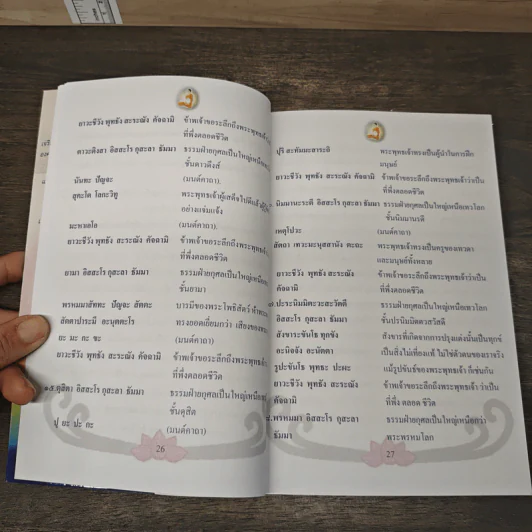 ยาวะชีวัง พุทธัง สะระณัง คัจฉามิ ข้าพเจ้าขอระลึกถึงพระพุทธเจ้า
ที่พึ่งตลอดชีวิต
ตาวะติงสา อิสสะโร กุสะลา ธัมมา ธรรมฝ่ายกุศลเป็นใหญ่เหนือเทว
ชั้นดาวดึงส์
นันทะ ปัญจะ (มนต์คาถา).
สุคะโต โลกะวิทู พระพุทธเจ้าผู้เสด็จไปดีแล้ว
อย่างแจ่มแจ้ง
มะหาเอโอ (มนต์คาถา).
ยาวะชีวัง พุทธัง สะระณัง คัจฉามิ ข้าพเจ้าขอระลึกถึงพระพุทธเจ้า
ที่พึ่งตลอดชีวิต
ยามา อิสสะโร กุสะลา ธัมมา ธรรมฝ่ายกุศลเป็นใหญ่เหนือ
ชั้นยามา
พรหมมาสัททะ ปัญจะ สัตตะ บารมีของพระโพธิสัตว์
สัตตาปาระมี อะนุตตะโร ทรงยอดเยี่ยมกว่า เสียงของพร
ยะ มะ กะ ขะ (มนต์คาถา)
ยาวะชีวัง พุทธัง สะระณัง คัจฉามิ ข้าพเจ้าขอระลึกถึงพระพุทธเจ้า
ที่พึ่งตลอดชีวิต
๑๕.ตุสิตา อิสสะโร กุสะลา ธัมมา ธรรมฝ่ายกุศลเป็นใหญ่เหนือ
ชั้นดุสิต
ปุ ยะ ปะ กะ (มนต์คาถา)
26
ปุริ สะทัมมะสาระถิ พระพุทธเจ้าทรงเป็นผู้นำในการฝึก
มนุษย์
ยาวะชีวัง พุทธัง สะระณัง คัจฉามิ ข้าพเจ้าขอระลึกถึงพระพุทธเจ้าว่าเป็น
ที่พึ่งตลอดชีวิต
นิมมานะระดี อิสสะโร กุสะลา ธัมมา ธรรมฝ่ายกุศลเป็นใหญ่เหนือเทวโลก
ชั้นนิมมานรดี
เหตุโปวะ (มนต์คาถา)
สัตถา เทวะมะนุสสานัง ตะถะ พระพุทธเจ้าทรงเป็นครูของเทวดา
และมนุษย์ทั้งหลาย
ยาวะชีวัง พุทธัง สะระณัง ข้าพเจ้าขอระลึกถึงพระพุทธเจ้าว่าเป็น
คัจฉามิ ที่พึ่งตลอดชีวิต
ปะระนิมมิตะวะสะวัตตี ธรรมฝ่ายกุศลเป็นใหญ่เหนือเทวโลก
อิสสะโร กุสะลา ธัมมา ชั้นปรนิมมิตตวสวัสดี
สังขาระขันโธ ทุกขัง สังขารที่เกิดจากการปรุงแต่งนั้นเป็นทุกข์
อะนิจจัง อะนัตตา เป็นสิ่งไม่เที่ยงแท้ ไม่ใช่ตัวตนของเราจริง
รูปะขันโธ พุทธะ ปะผะ แม้รูปขันธ์ของพระพุทธเจ้า ก็เช่นกัน
ยาวะชีวัง พุทธัง สะระณัง ข้าพเจ้าขอระลึกถึงพระพุทธเจ้า ว่าเป็น
คัจฉามิ ที่พึ่ง ตลอด ชีวิต
พรหมมา อิสสะโร กุสะลา ธรรมฝ่ายกุศลเป็นใหญ่เหนือกว่า
ธัมมา พระพรหมโลก
27